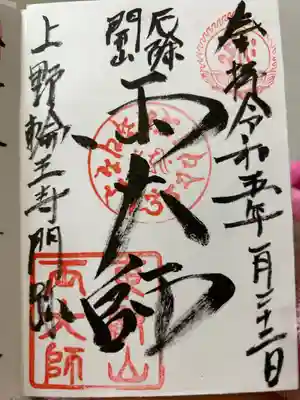 奉拝 令和五年一月二十二日
厄除
開山
両大師
上野輪王寺門跡
東叡山
両大師